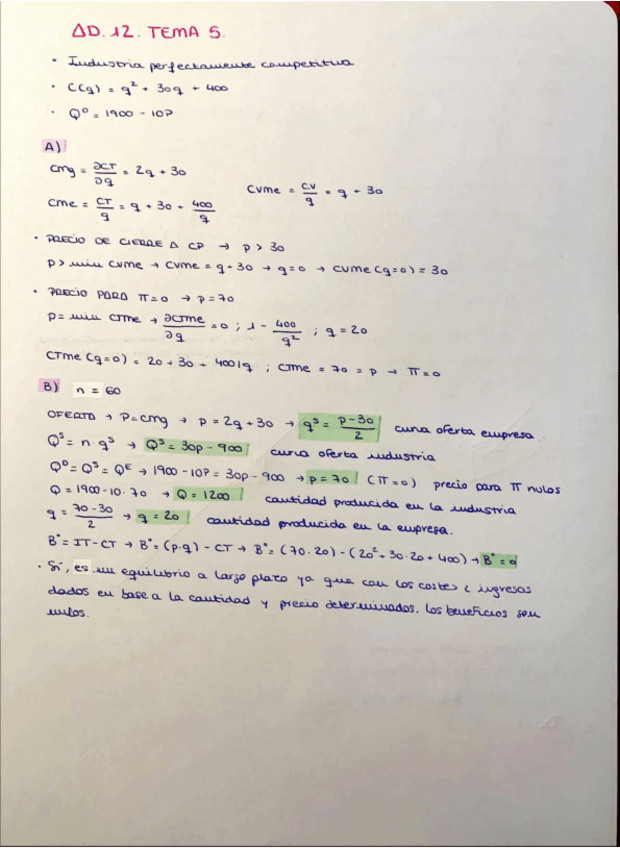 AD.12. TEMA 5.
• Industria perfectamente competitiva
• C(q) = q² + 30q + 400
• Qᴰ = 1900 - 10P
A)
Cmg = ∂CT/∂q = 2q + 30
CVme = CV/q = q + 30
Cme = CT/q = q + 30 + 400/q
• PRECIO DE CIERRE A CP → P > 30
P > min CVme → CVme = q + 30 → q = 0 → CVme (q=0) = 30
• PRECIO PARA π=0 → P=70
P= min CTme → ∂CTme/∂q = 0 ; 1 - 400/q² ; q = 20
CTme (q=0) = 20 + 30 + 400/q ; CTme = 70 = P → π=0
B) n = 60
OFERTA → P=Cmg → P = 2q + 30 → qˢ = P-30/2 curva oferta empresa.
Qˢ = n · qˢ → Qˢ = 30p - 900 curva oferta industria
Qᴰ = Qˢ = Qᴱ → 1900 - 10P = 30p - 900 → P = 70 (π=0) precio para π nulos
Q = 1900 - 10 · 70 → Q = 1200 cantidad producida en la industria
q = 70-30/2 → q = 20 cantidad producida en la empresa.
B° = IT - CT → B° = (P·q) - CT → B° = (70 · 20) - (20² + 30·20 + 400) → B° = 0
• Sí, es un equilibrio a largo plazo ya que con los costes e ingresos
dados en base a la cantidad y precio determinados, los beneficios son
nulos.